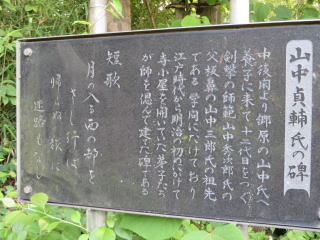 山中貞輔氏の碑
中後閑より郷原の山中氏へ
養子に来て十二代目をつぐ
剣撃の師範山中彦次郎氏の
父放鼻の山中三郎氏の祖先
である学問にたけており
江戸時代から明治の初めにかけて
寺小屋を開いていた弟子たち
が師を偲んで建てた碑である
短歌
月の入る西の都を
さし行ば
帰らぬ旅に
迷路もなし